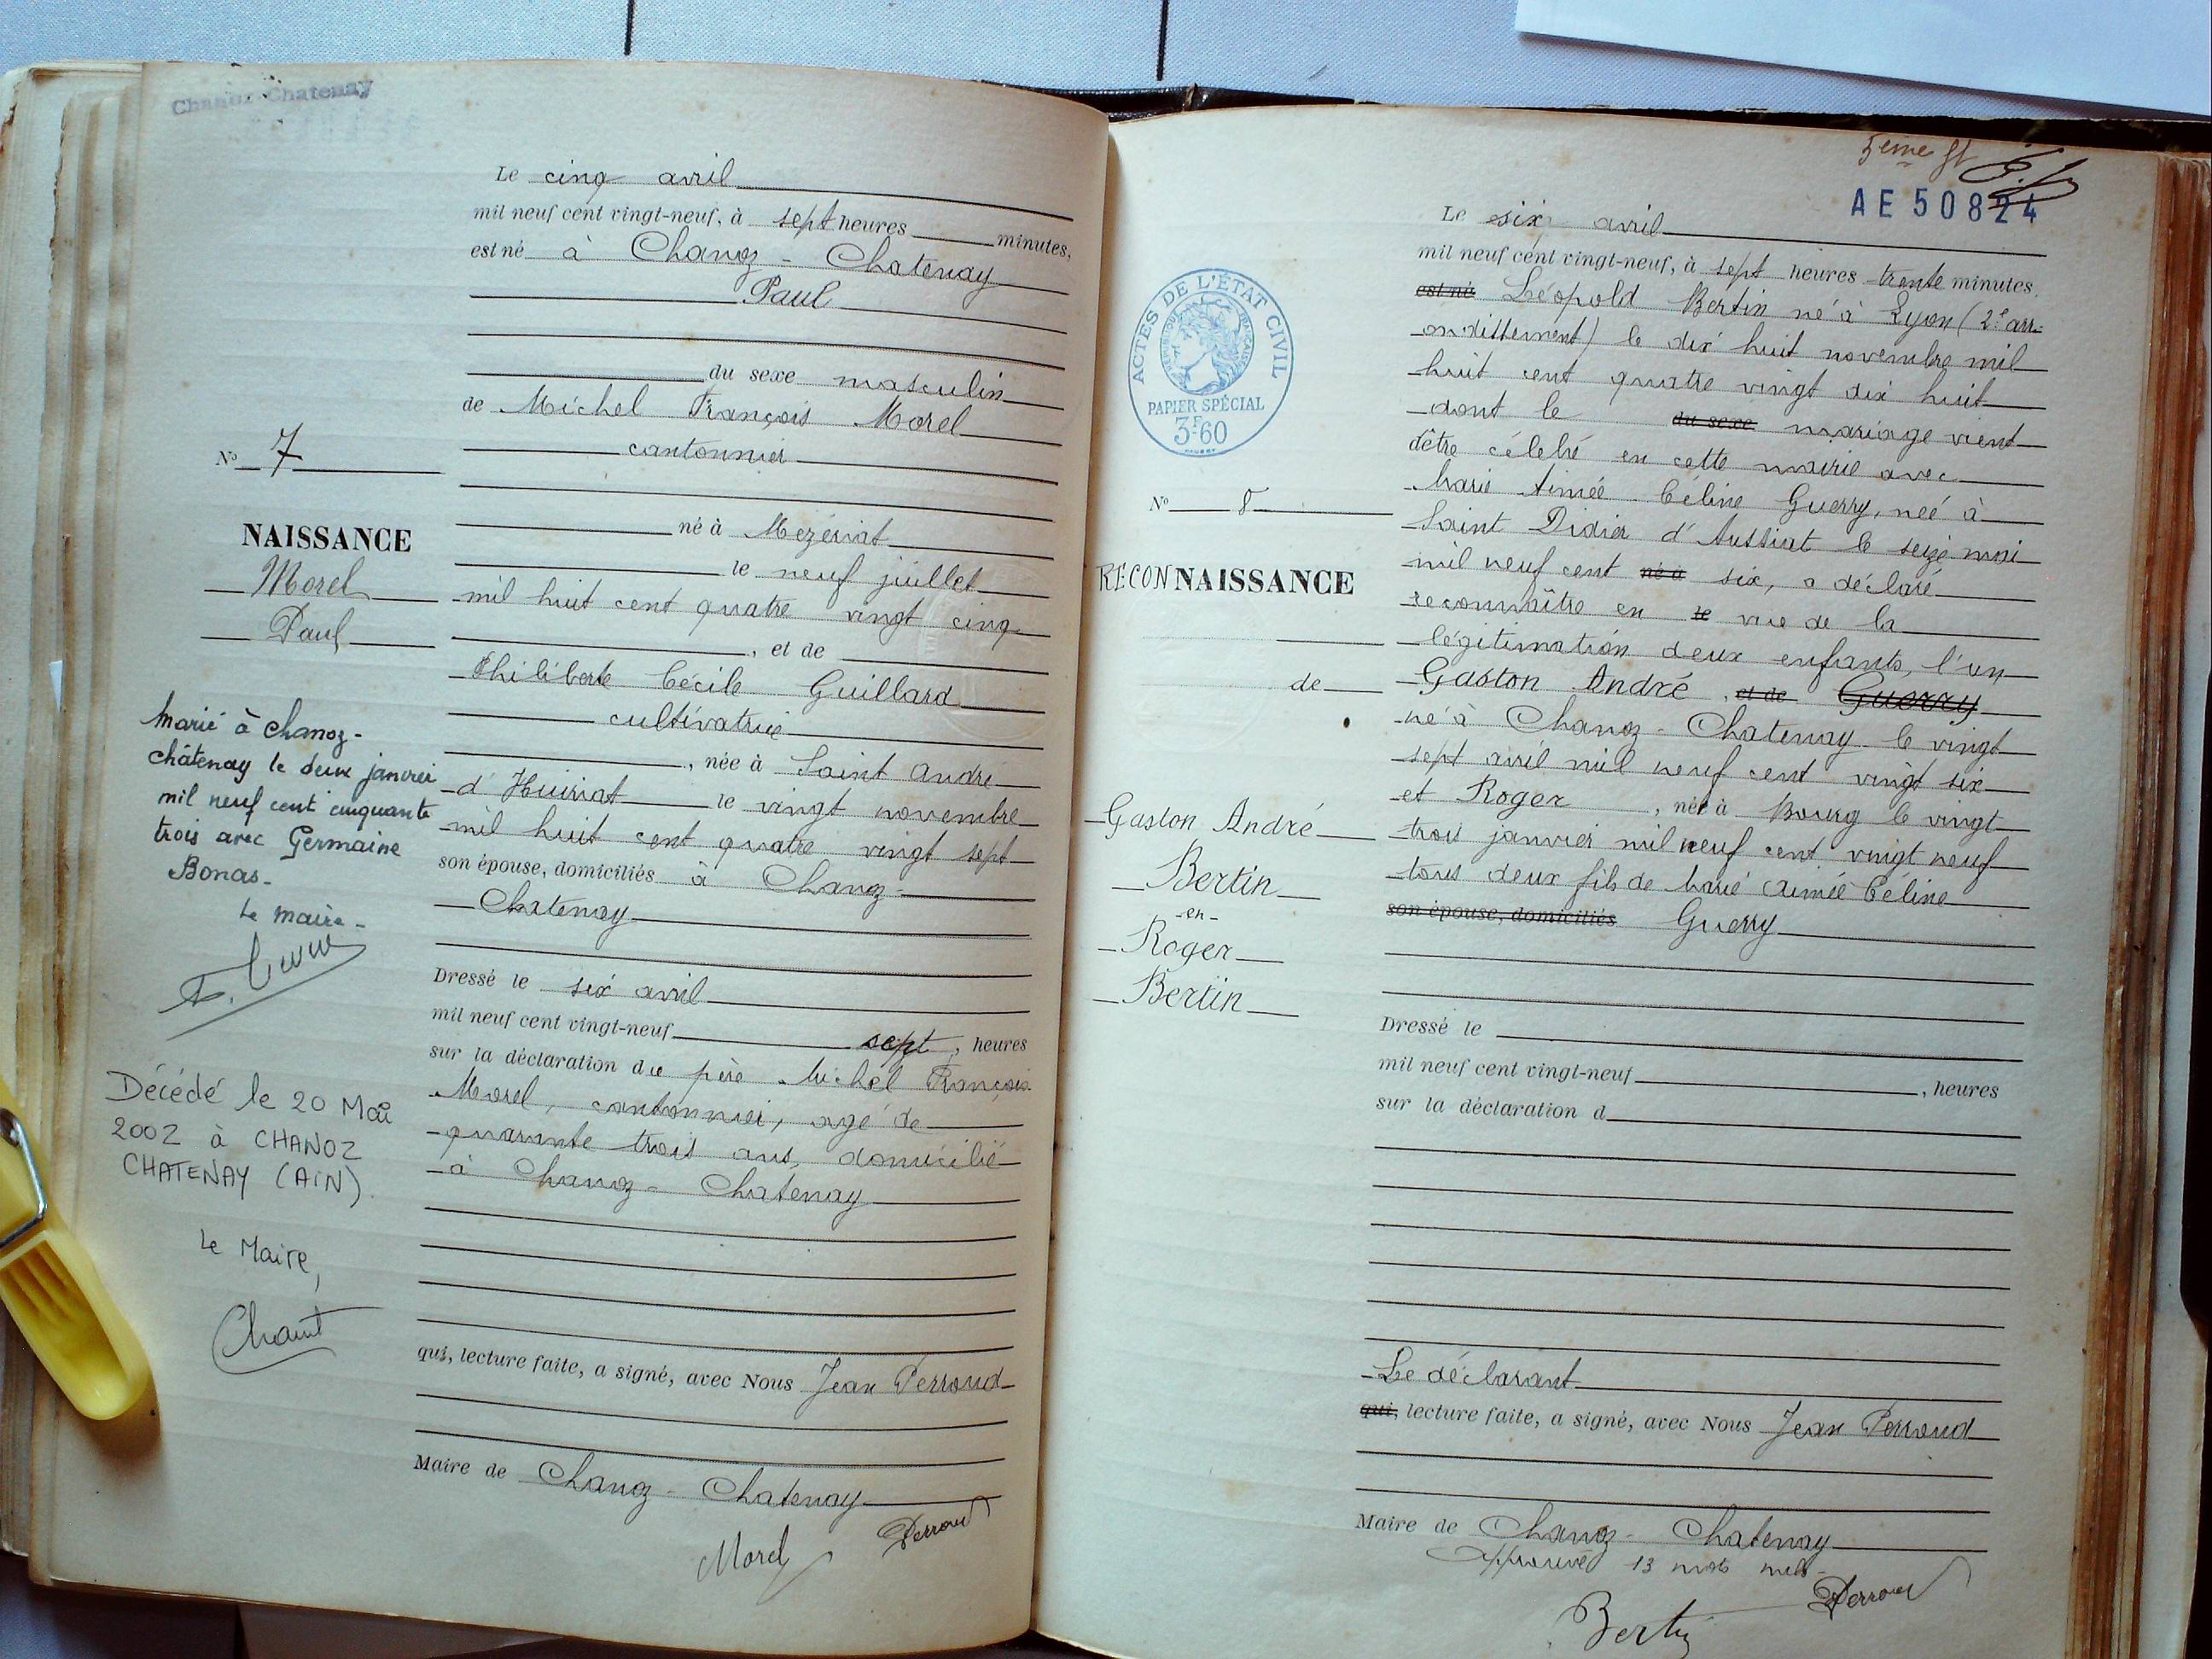 Chanoz-Chatenay
Le cinq avril
mil neuf cent vingt-neuf, à sept heures minutes,
est né à Chanoz - Chatenay
Paul
du sexe masculin
de Michel François Morel
cantonnier
né à Mezériat
le neuf juillet
mil huit cent quatre vingt cinq
, et de
Philiberte Cécile Guillard
cultivatrice
, née à Saint André
d'Huiriat le vingt novembre
mil huit cent quatre vingt sept
son épouse, domiciliés à Chanoz-
Chatenay
Dressé le six avril
mil neuf cent vingt-neuf sept, heures
sur la déclaration du père Michel François
Morel, cantonnier, agé de
quarante trois ans, domicilié
à Chanoz - Chatenay
qui, lecture faite, a signé, avec Nous Jean Perroud
Maire de Chanoz - Chatenay
Morel Perroud
No 7
NAISSANCE
Morel
Paul
Marié à Chanoz-
châtenay le deux janvier
mil neuf cent cinquante
trois avec Germaine
Bonas-
Le maire-
Décédé le 20 Mai
2002 à CHANOZ
CHATENAY (AIN).
Le Maire,
5eme ft
AE 50824
ACTES DE L'ÉTAT CIVIL
RÉPUBLIQUE FRANÇAISE
PAPIER SPÉCIAL
3F60
No 8
RECONNAISSANCE
de
Gaston André
Bertin
-en-
Roger
Bertin
Le six avril
mil neuf cent vingt-neuf, à sept heures trente minutes.
est né Léopold Bertin né à Lyon (2e arr-
ondissement) le dix huit novembre mil
huit cent quatre vingt dix huit
dont le du sexe mariage vient
d'être célébré en cette mairie avec
Marie Aimée Céline Guerry, née à
Saint Didier d'Aussiat le seize mai
mil neuf cent né à six, a déclaré
reconnaître en le vue de la
légitimation deux enfants, l'un
Gaston André , et de Guerry
né à Chanoz - Chatenay le vingt
sept avril mil neuf cent vingt six
et Roger , né à Bourg le vingt
trois janvier mil neuf cent vingt neuf
tous deux fils de Marie Aimée Céline
son épouse, domiciliés Guerry
Dressé le
mil neuf cent vingt-neuf , heures
sur la déclaration d
Le déclarant
qui, lecture faite, a signé, avec Nous Jean Perroud
Maire de Chanoz - Chatenay
Approuvé 13 mots nuls-
Bertin Perroud